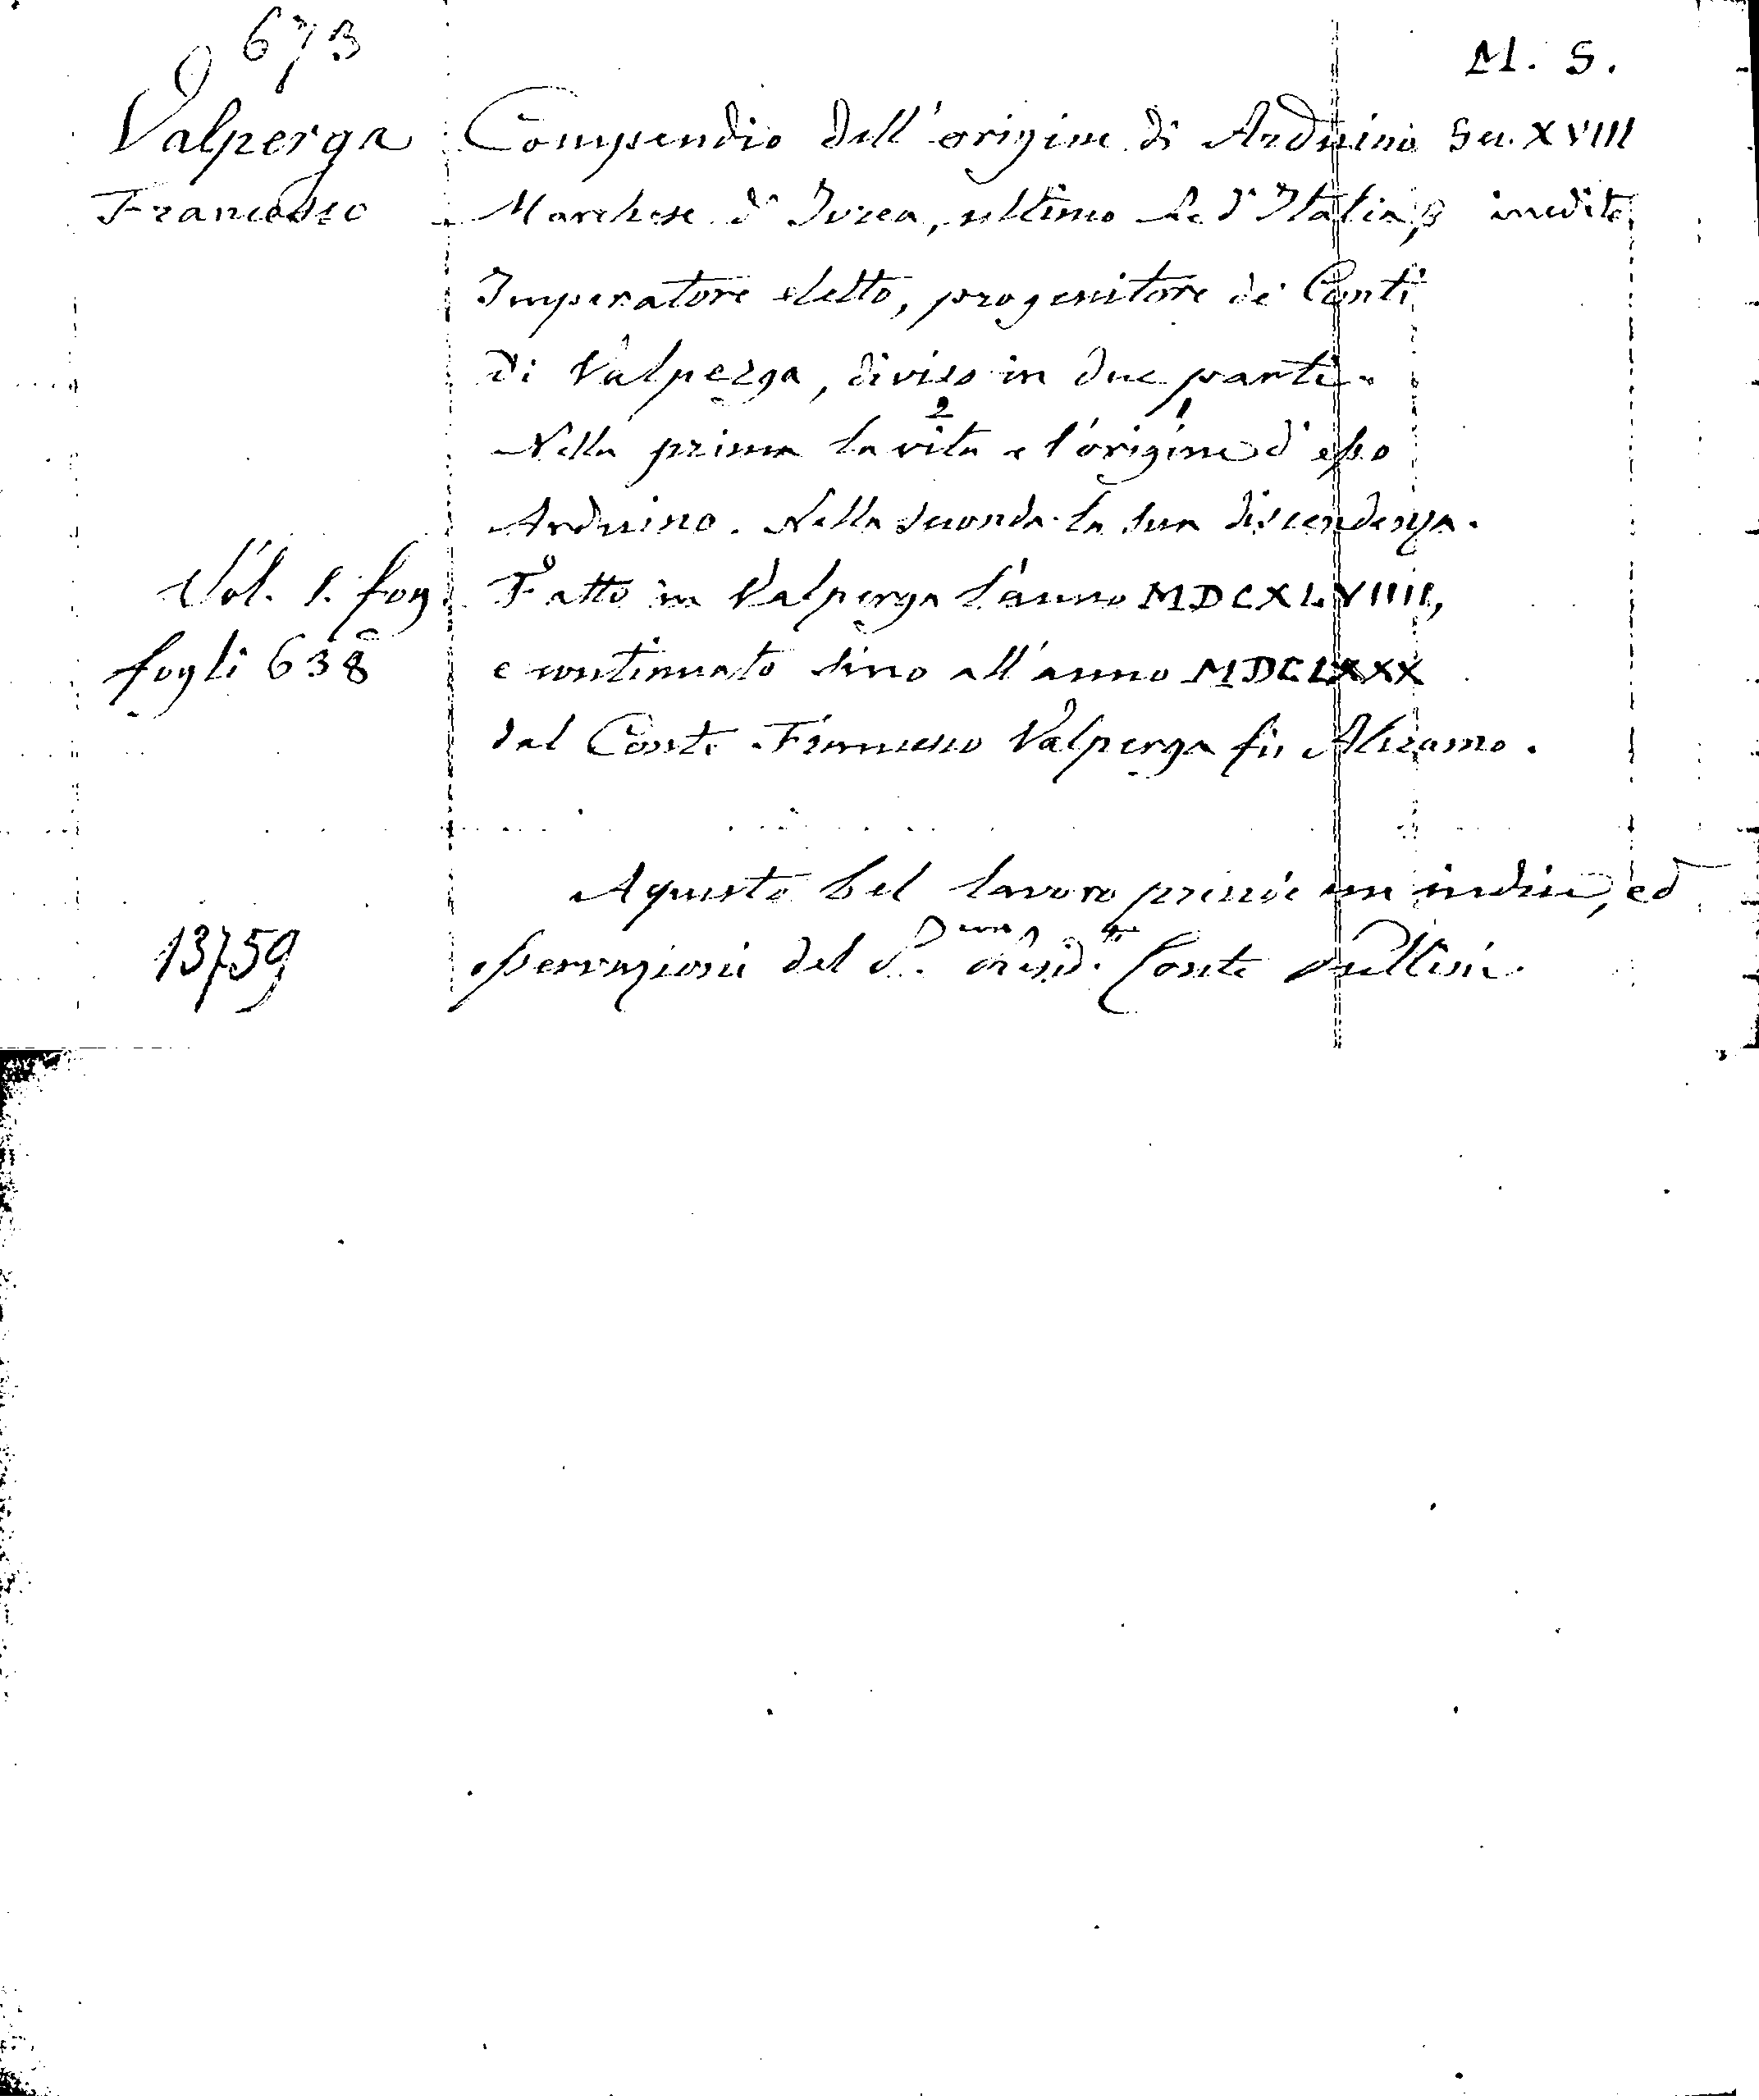 673
M. S.
Valperga
Francesco
Compendio dell'origine di Arduino
Sec. XVIII
Marchese d'Ivrea, ultimo Re d'Italia, e
inedito
Imperatore eletto, progenitore de' Conti
di Valperga, diviso in due parti.
2 1
Nella prima la vita e l'origine d'esso
Arduino. Nella seconda la sua discendenza.
Vol. 1. fog.
Fatto in Valperga l'anno MDCXLVIIII,
fogli 638
e continuato sino all'anno MDCLXXX
dal Conte Francesco Valperga fu Aleramo.
A questo bel lavoro precede un indice, ed
13759
osservazioni del Presid. Conte